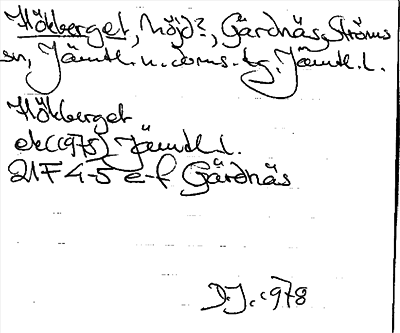 Hökberget, höjd?, Gärdnäs, Ströms
sn, Jämtl. n. doms. tg, Jämtl. l.
Hökberget
ek (1975) Jämtl. l.
21F 4-5 e-f Gärdnäs
D.J. 1978